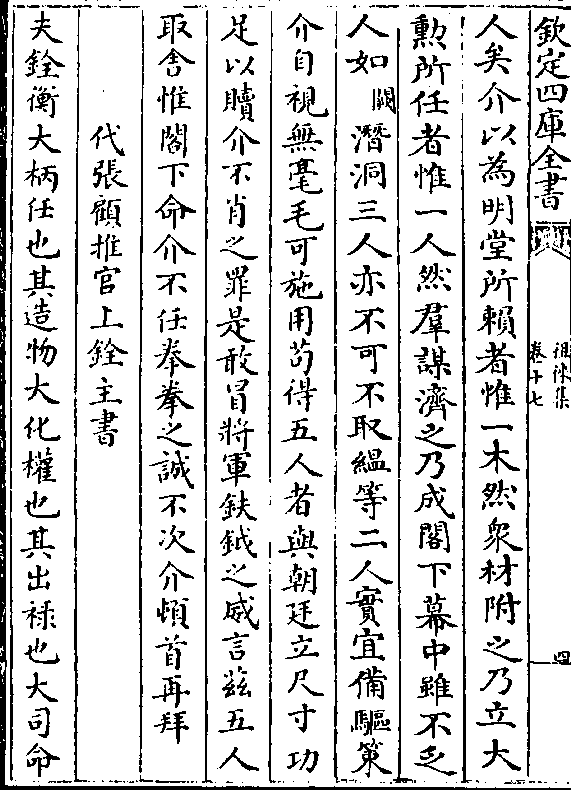 欽定四庫全書
徂徠集
卷十七
四
人矣介以為明堂所頼者惟一木然衆材附之乃立大
勲所任者惟一人然羣謀濟之乃成閣下幕中雖不乏
人如闕潛洞三人亦不可不取緼等二人實宜備驅策
介自視無毫毛可施用茍得五人者與朝廷立尺寸功
足以贖介不肖之罪是敢冒將軍鈇鉞之威言茲五人
取舍惟閣下命介不任拳拳之誠不次介頓首再拜
代張顧推官上銓主書
夫銓衡大柄任也其造物大化權也其出祿也大司命